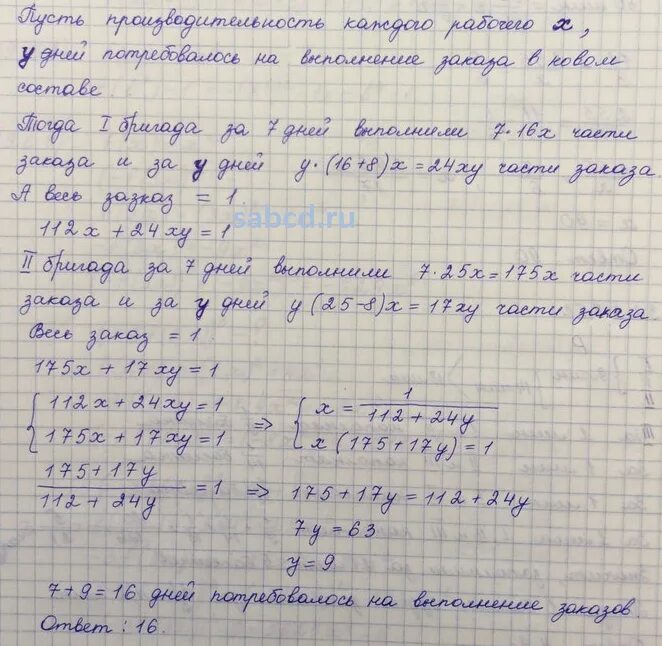 Пусть производительность каждого рабочего x,
y дней потребовалось на выполнение заказа в новом
составе.
Тогда I бригада за 7 дней выполнили 7·16x части
заказа и за y дней y·(16+8)x = 24xy части заказа
А весь зазказ = 1.
sabcd.ru
112x + 24xy = 1
II бригада за 7 дней выполнили 7·25x = 175x части
заказа и за y дней y(25-8)x = 17xy части заказа.
Весь заказ = 1.
175x + 17xy = 1
{ 112x + 24xy = 1 => { x = 1/(112 + 24y)
175x + 17xy = 1 x(175+17y) = 1
(175+17y)/(112 + 24y) = 1 => 175 + 17y = 112 + 24y
7y = 63
y = 9
7 + 9 = 16 дней потребовалось на выполнение заказов.
Ответ: 16.